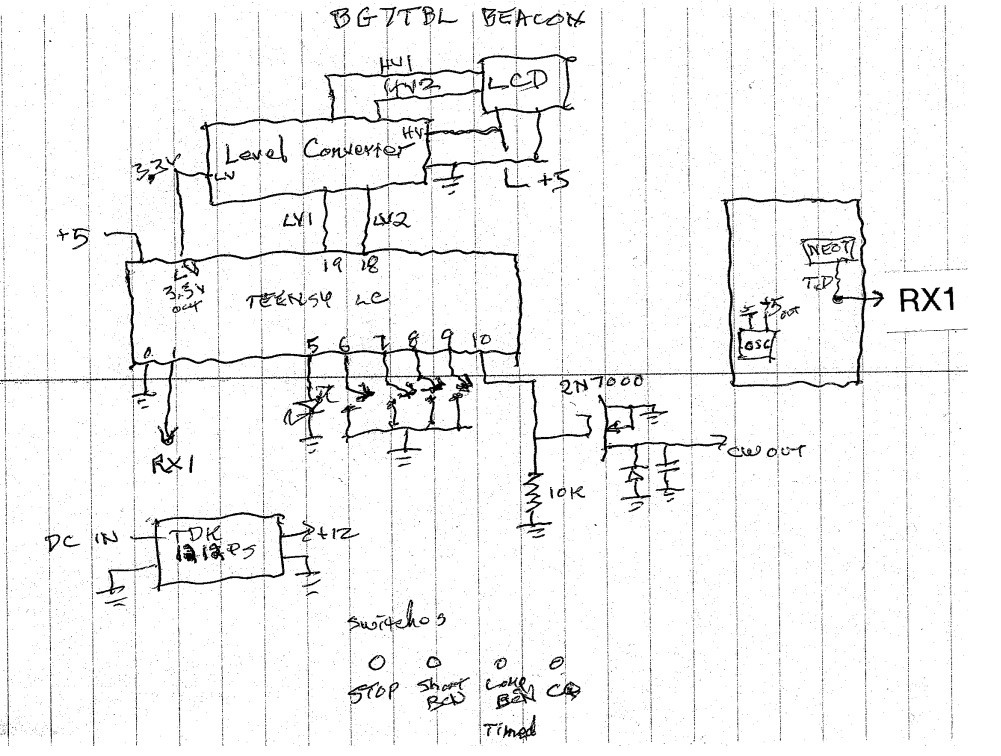 BG7TBL BEACON
HV1
HV2
LCD
HV
Level Converter
LV
3.3V
L +5
LV1
LV2
+5
19 18
3.3V
out
TEENSY LC
0 1
5 6 7 8 9 10
RX1
NEO7
TXD
RX1
+5
out
OSC
2N7000
CW OUT
10K
DC IN
TDK
+12
switches
STOP
Short
BCN
Long
BCN
CQ
Timed